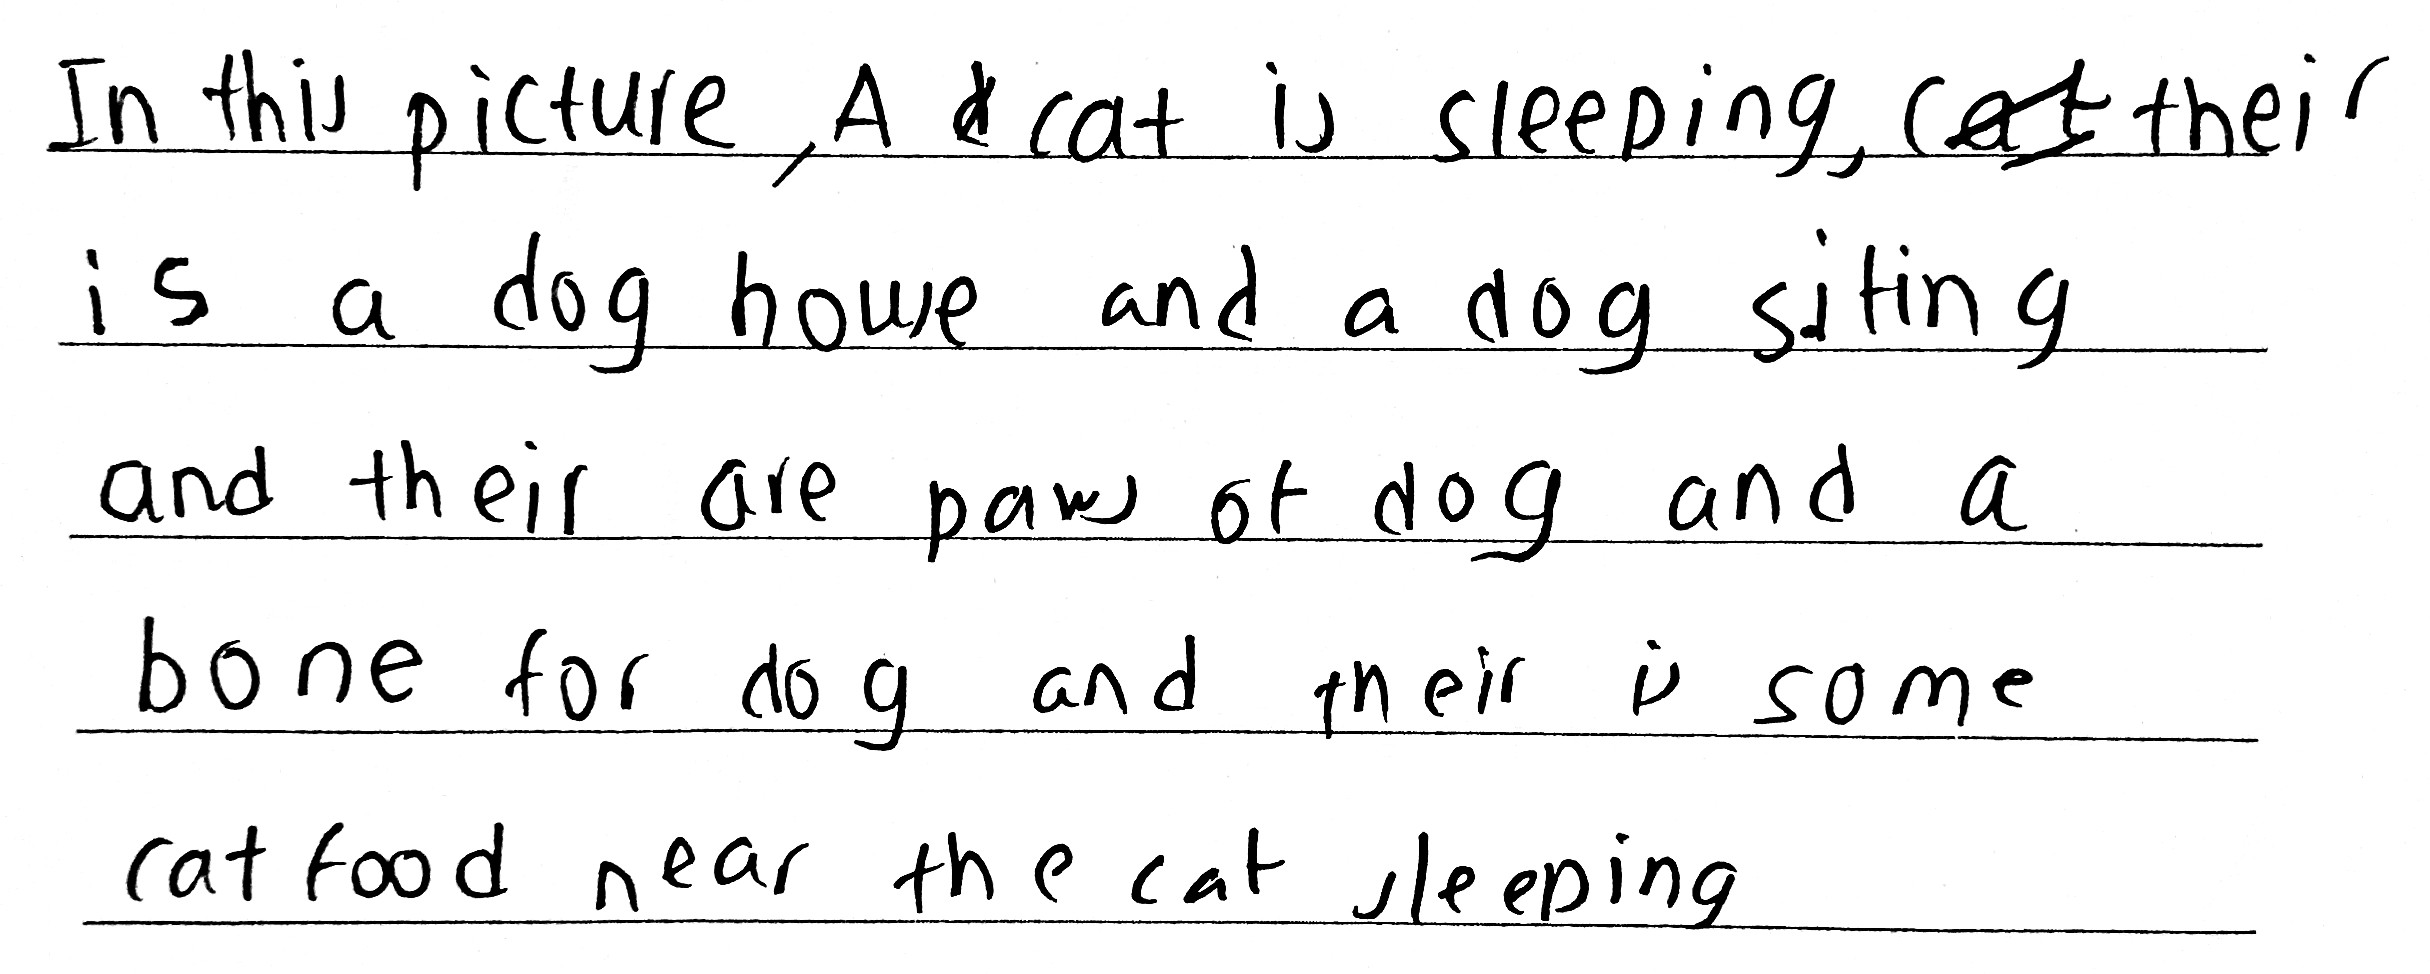 In this picture, A cat is sleeping, their
is a dog house and a dog siting
and their are paws of dog and a
bone for dog and their is some
cat food near the cat sleeping